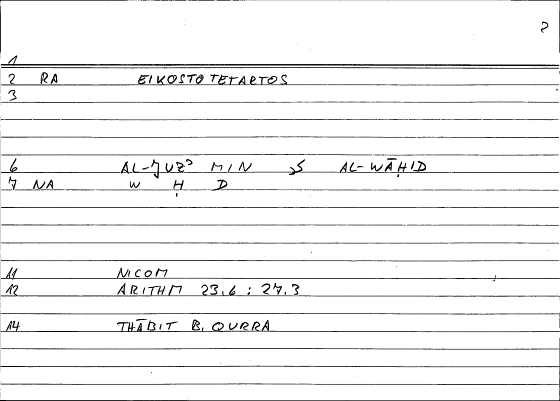 2
1
2 RA EIKOSTOTETARTOS
3
6 AL-JUZʾ MIN AL-WĀḤID
7 NA W Ḥ D
11 NICOM
12 ARITHM 23.6 : 27.3
14 THĀBIT B. QURRA